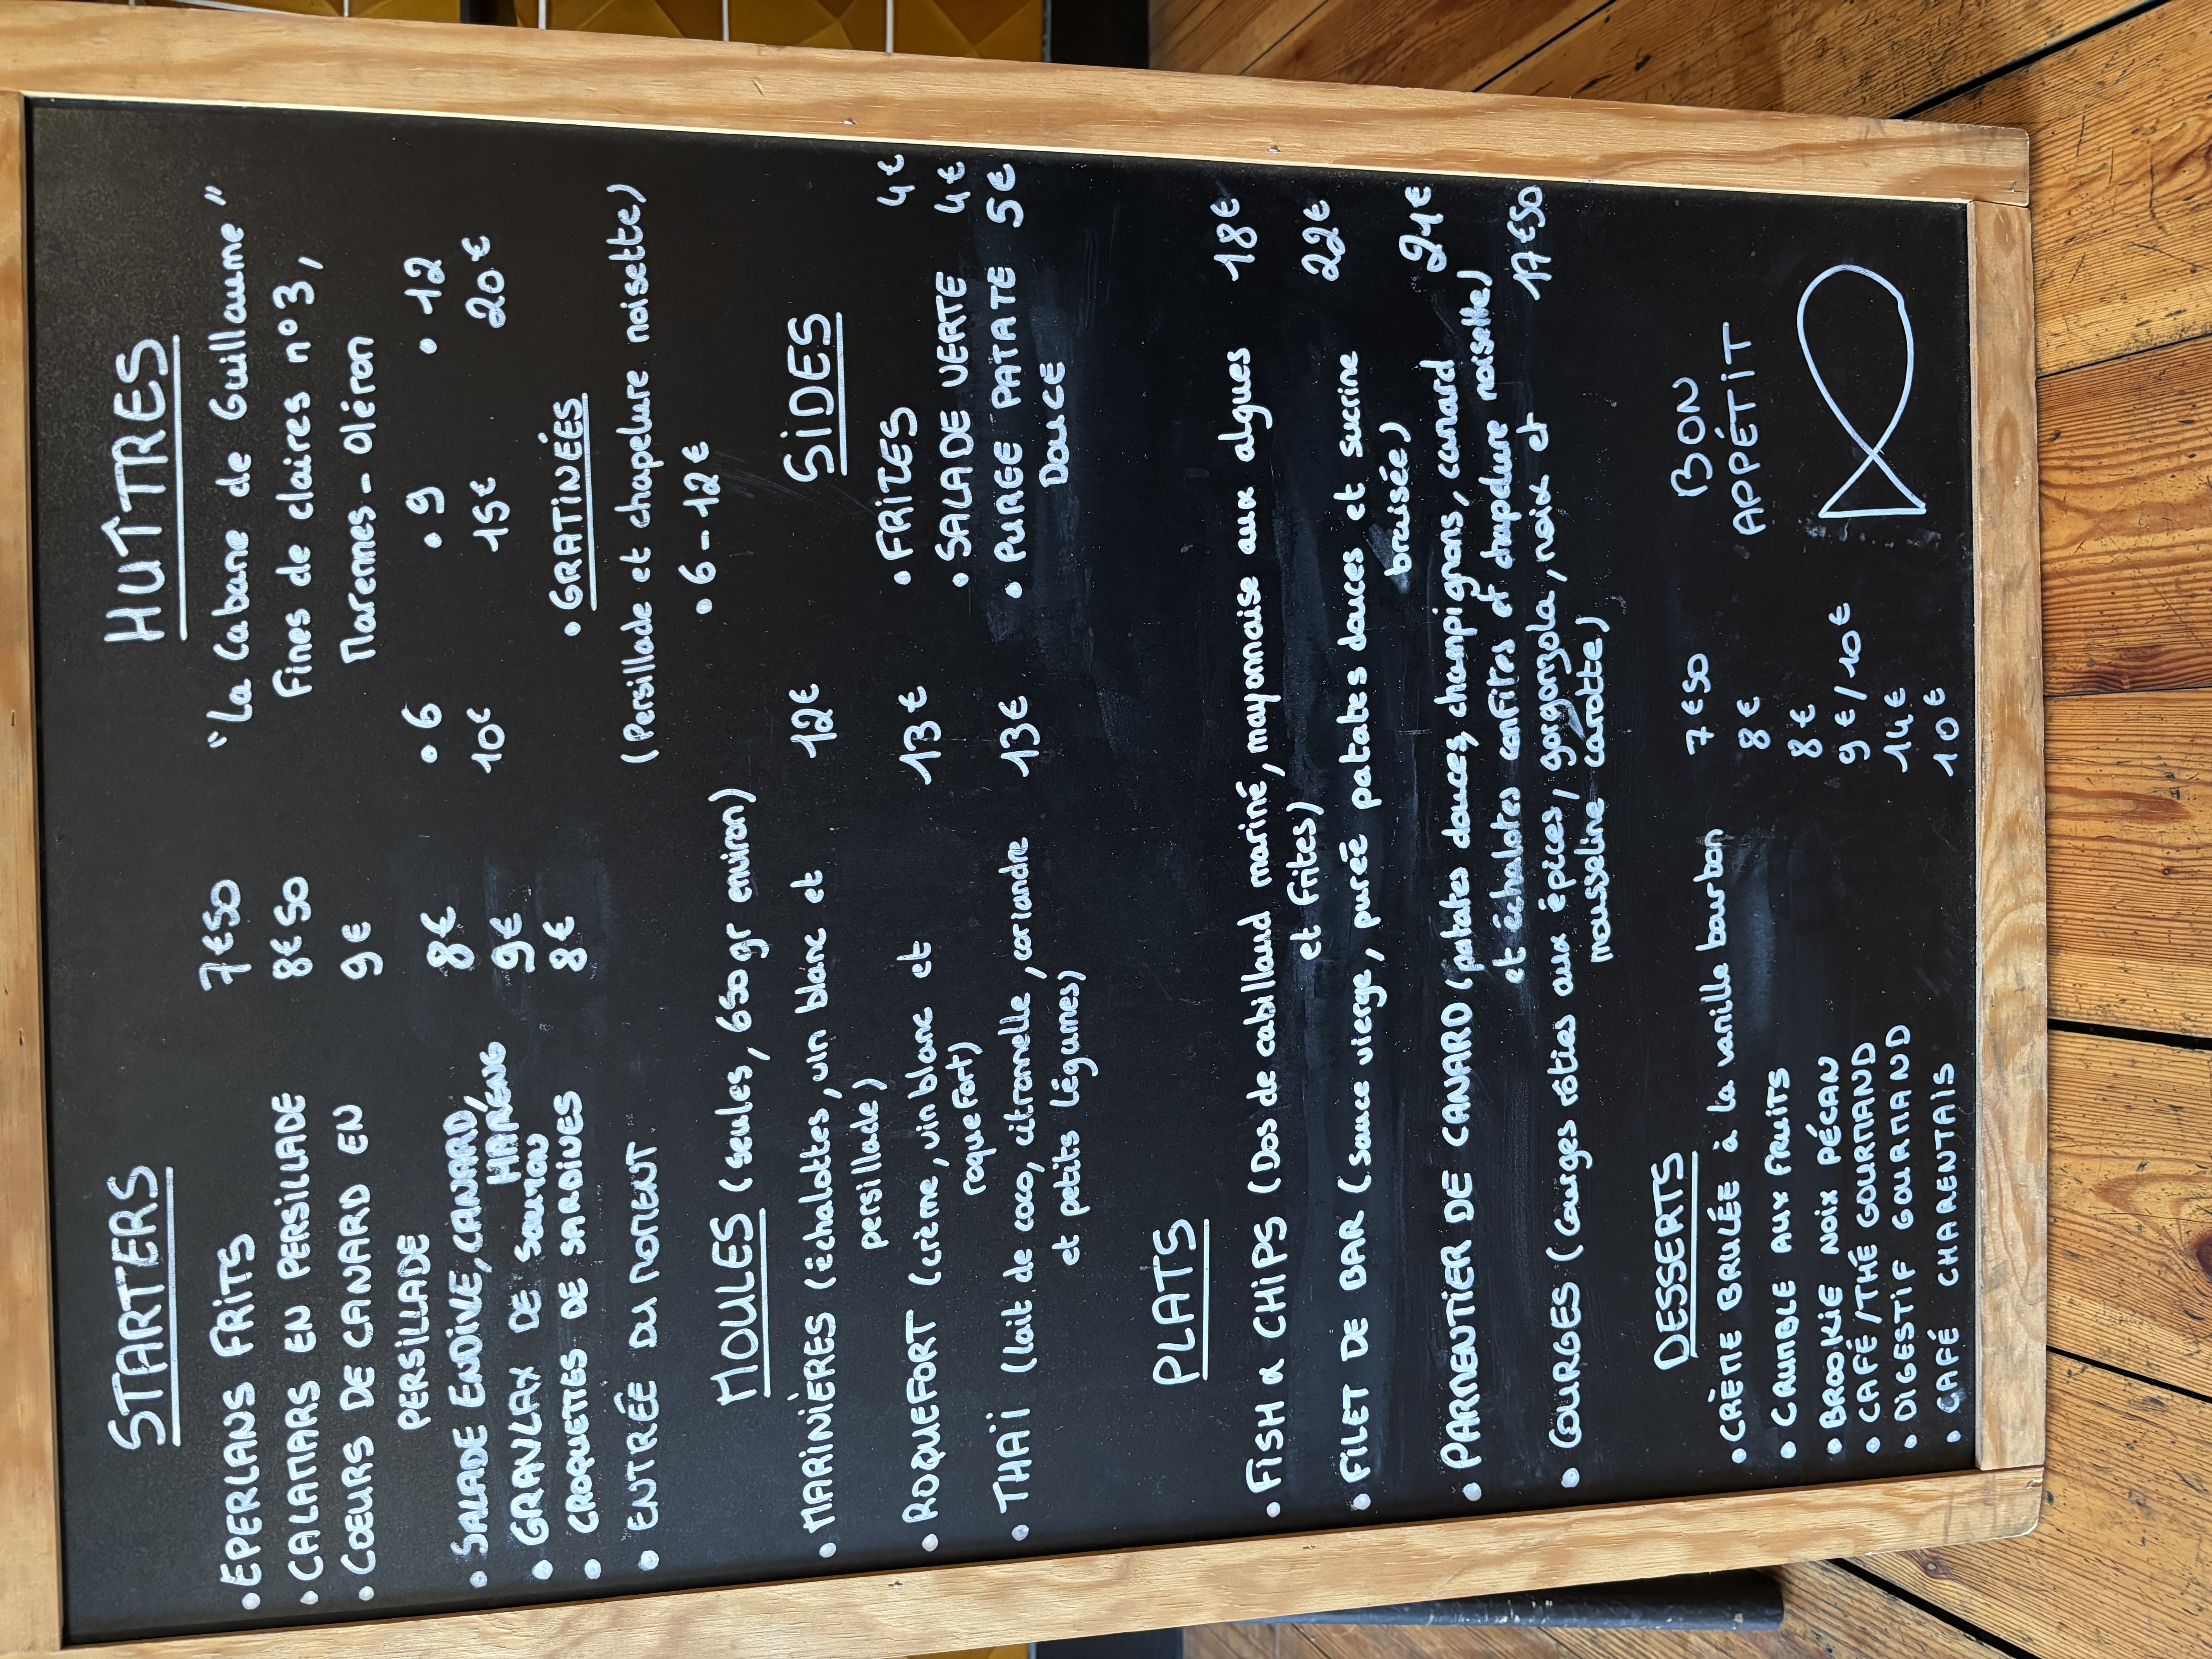 STARTERS
• EPERLANS FRITS 7€50
• CALAMARS EN PERSILLADE 8€50
• COEURS DE CANARD EN 9€
PERSILLADE
• SALADE ENDIVE, CANARD, HARENG 8€
• GRAVLAX DE Saumon 9€
• CROQUETTES DE SARDINES 8€
• ENTRÉE DU MOMENT
HUÎTRES
"La Cabane de Guillaume"
Fines de claires n°3,
Marennes - Oléron
• 6 • 9 • 12
10€ 15€ 20€
• GRATINÉES
(Persillade et chapelure noisette)
• 6 - 12€
MOULES (seules, 650 gr environ)
• MARINIÈRES (échalottes, vin blanc et 12€
persillade)
• ROQUEFORT (crème, vin blanc et 13€
roquefort)
• THAÏ (lait de coco, citronnelle, coriandre 13€
et petits légumes)
SIDES
• FRITES 4€
• SALADE VERTE 4€
• PUREE PATATE 5€
DOUCE
PLATS
• FISH & CHIPS (Dos de cabillaud mariné, mayonnaise aux algues 18€
et frites)
• FILET DE BAR (sauce vierge, purée patates douces et sucrine 22€
braisée)
• PARMENTIER DE CANARD (patates douces, champignons, canard 24€
et échalotes confites et chapelure noisette)
• COURGES (Courges rôties aux épices, gorgonzola, noix et 17€50
mousseline carotte)
DESSERTS
• CRÈME BRULÉE à la vanille bourbon 7€50
• CRUMBLE AUX FRUITS 8€
• BROOKIE NOIX PÉCAN 8€
• CAFÉ/THÉ GOURMAND 9€/10€
• DIGESTIF GOURMAND 14€
• CAFÉ CHARENTAIS 10€
BON
APPÉTIT